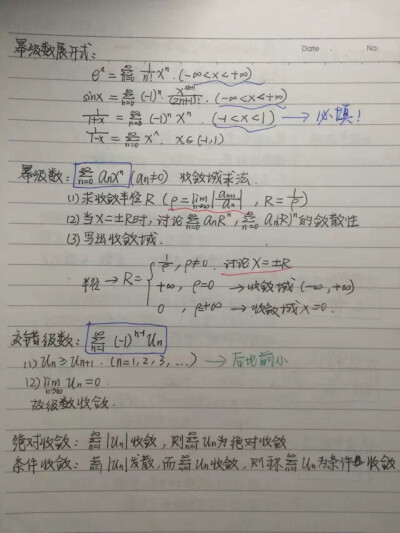 Date No:
幂级数展开式:
e^x = ∑_{n=0}^{∞} 1/n! x^n. (-∞<x<+∞)
sinx = ∑_{n=0}^{∞} (-1)^n x^{2n+1}/(2n+1)!. (-∞<x<+∞)
1/(1+x) = ∑_{n=0}^{∞} (-1)^n x^n. (-1<x<1) → 必填!
1/(1-x) = ∑_{n=0}^{∞} x^n. x∈(-1,1)
幂级数: ∑_{n=0}^{∞} a_n x^n (a_n≠0) 收敛域求法.
(1) 求收敛半径R (ρ=lim_{n→∞} |a_{n+1}/a_n|, R=1/ρ)
(2) 当x=±R时, 讨论∑_{n=0}^{∞} a_n R^n, ∑_{n=0}^{∞} a_n(-R)^n的敛散性
(3) 写出收敛域.
半径 → R= { 1/ρ, ρ≠0. 讨论x=±R
+∞, ρ=0 → 收敛域 (-∞,+∞)
0, ρ=+∞ → 收敛域 x=0.
交错级数: ∑_{n=1}^{∞} (-1)^{n-1} u_n
(1) u_n ≥ u_{n+1}. (n=1,2,3,...) → 后比前小
(2) lim_{n→∞} u_n = 0.
故级数收敛.
绝对收敛: ∑_{n=1}^{∞} |u_n| 收敛, 则∑_{n=1}^{∞} u_n为绝对收敛
条件收敛: ∑_{n=1}^{∞} |u_n| 发散, 而∑_{n=1}^{∞} u_n收敛, 则称∑_{n=1}^{∞} u_n为条件收敛